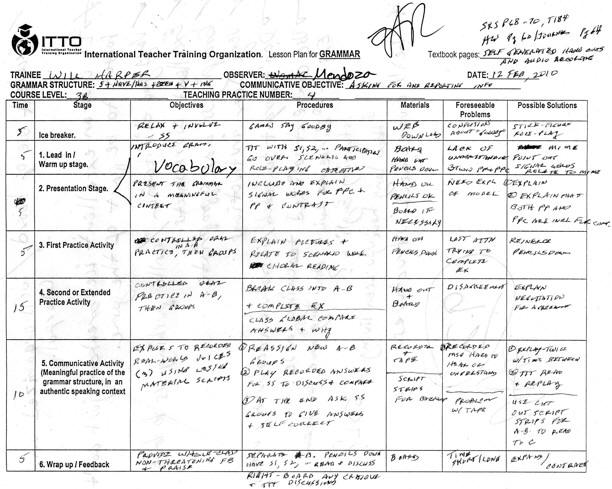 SRS PG 8-70, T184
HW Pg 60/JOURNAL Pg 64
ITTO
International Teacher
Training Organization
International Teacher Training Organization. Lesson Plan for GRAMMAR
Textbook pages: SELF GENERATED HAND OUTS
AND AUDIO RECORDING
TRAINEE WILL HARPER OBSERVER: Mendoza DATE: 12 FEB 2010
GRAMMAR STRUCTURE: S + HAVE/HAS + BEEN + V + ING COMMUNICATIVE OBJECTIVE: ASKING FOR AND REPORTING INFO
COURSE LEVEL: 3B TEACHING PRACTICE NUMBER: 4
Time Stage Objectives Procedures Materials Foreseeable Problems Possible Solutions
5
Ice breaker.
RELAX + INVOLVE
SS
GAMES
WEB
DOWNLOAD
CONFUSION
ABOUT
STICK-FIGURE
ROLE-PLAY
5
1. Lead in /
Warm up stage.
INTRODUCE GRAM.
Vocabulary
TTT WITH S1, S2, — PARTICIPATION
GO OVER SCENARIO AND
ROLE-PLAYING
BOARD
HAND OUT
PENCILS DOWN
LACK OF
UNDERSTANDING
MIME
POINT OUT
SIGNAL WORDS
RELATE TO MIME
5
2. Presentation Stage.
PRESENT THE GRAMMAR
IN A MEANINGFUL
CONTEXT
INCLUDE AND EXPLAIN
SIGNAL WORDS FOR PPC +
PP + CONTRAST
HAND OUT
PENCILS OK
BOARD IF
NECESSARY
NEED EXPL
OF MODEL
① EXPLAIN
② EXPLAIN THAT
BOTH PP AND
PPC ARE INCL FOR COMP.
5
3. First Practice Activity
CONTROLLED ORAL
PRACTICE, IN A-B THEN GROUPS
EXPLAIN PICTURES +
RELATE TO SCENARIO WORK
CHORAL READING
HAND OUT
PENCILS DOWN
LAST ATTN
TRYING TO
COMPLETE
EX
REINFORCE
PENCILS DOWN
15
4. Second or Extended
Practice Activity
CONTROLLED ORAL
PRACTICE IN A-B,
THEN GROUPS
BREAK CLASS INTO A-B
+ COMPLETE EX
CLASS GLOBAL COMPARE
ANSWERS + WHY
HAND OUT
+
BOARD
DISAGREEMENT
EXPLAIN
NEGOTIATION
FOR AGREEMENT
10
5. Communicative Activity
(Meaningful practice of the
grammar structure, in an
authentic speaking context
EXPOSE S TO RECORDED
REAL-WORLD VOICES
USING
MATERIAL SCRIPTS
① REASSIGN NEW A-B
GROUPS
② PLAY RECORDED ANSWERS
FOR SS TO DISCUSS + COMPARE
③ AT THE END ASK SS
GROUPS TO GIVE ANSWERS
+ SELF CORRECT
RECORDER
+
TAPE
SCRIPT
STRIPS
FOR BACKUP
RECORDED
HARD TO
HEAR OR
UNDERSTAND
PROBLEM
W/TAPE
① REPLAY-TWICE
W/TIME BETWEEN
② TTT READ
+ REPLAY
USE
OUT SCRIPT
STRIPS FOR
A-B TO READ
TO C
5
6. Wrap up / Feedback
PROVIDE W/WHOLE-CLASS
NON-THREATENING FB
+ PRAISE
SEPARATE A-B. PENCILS DOWN
HAVE S1, S2, — READ + DISCUSS
RIGHT-BOARD ANY
+ TTT DISCUSSIONS
BOARD
TIME
SHORT/LONG
EXPAND/
CONTRACT